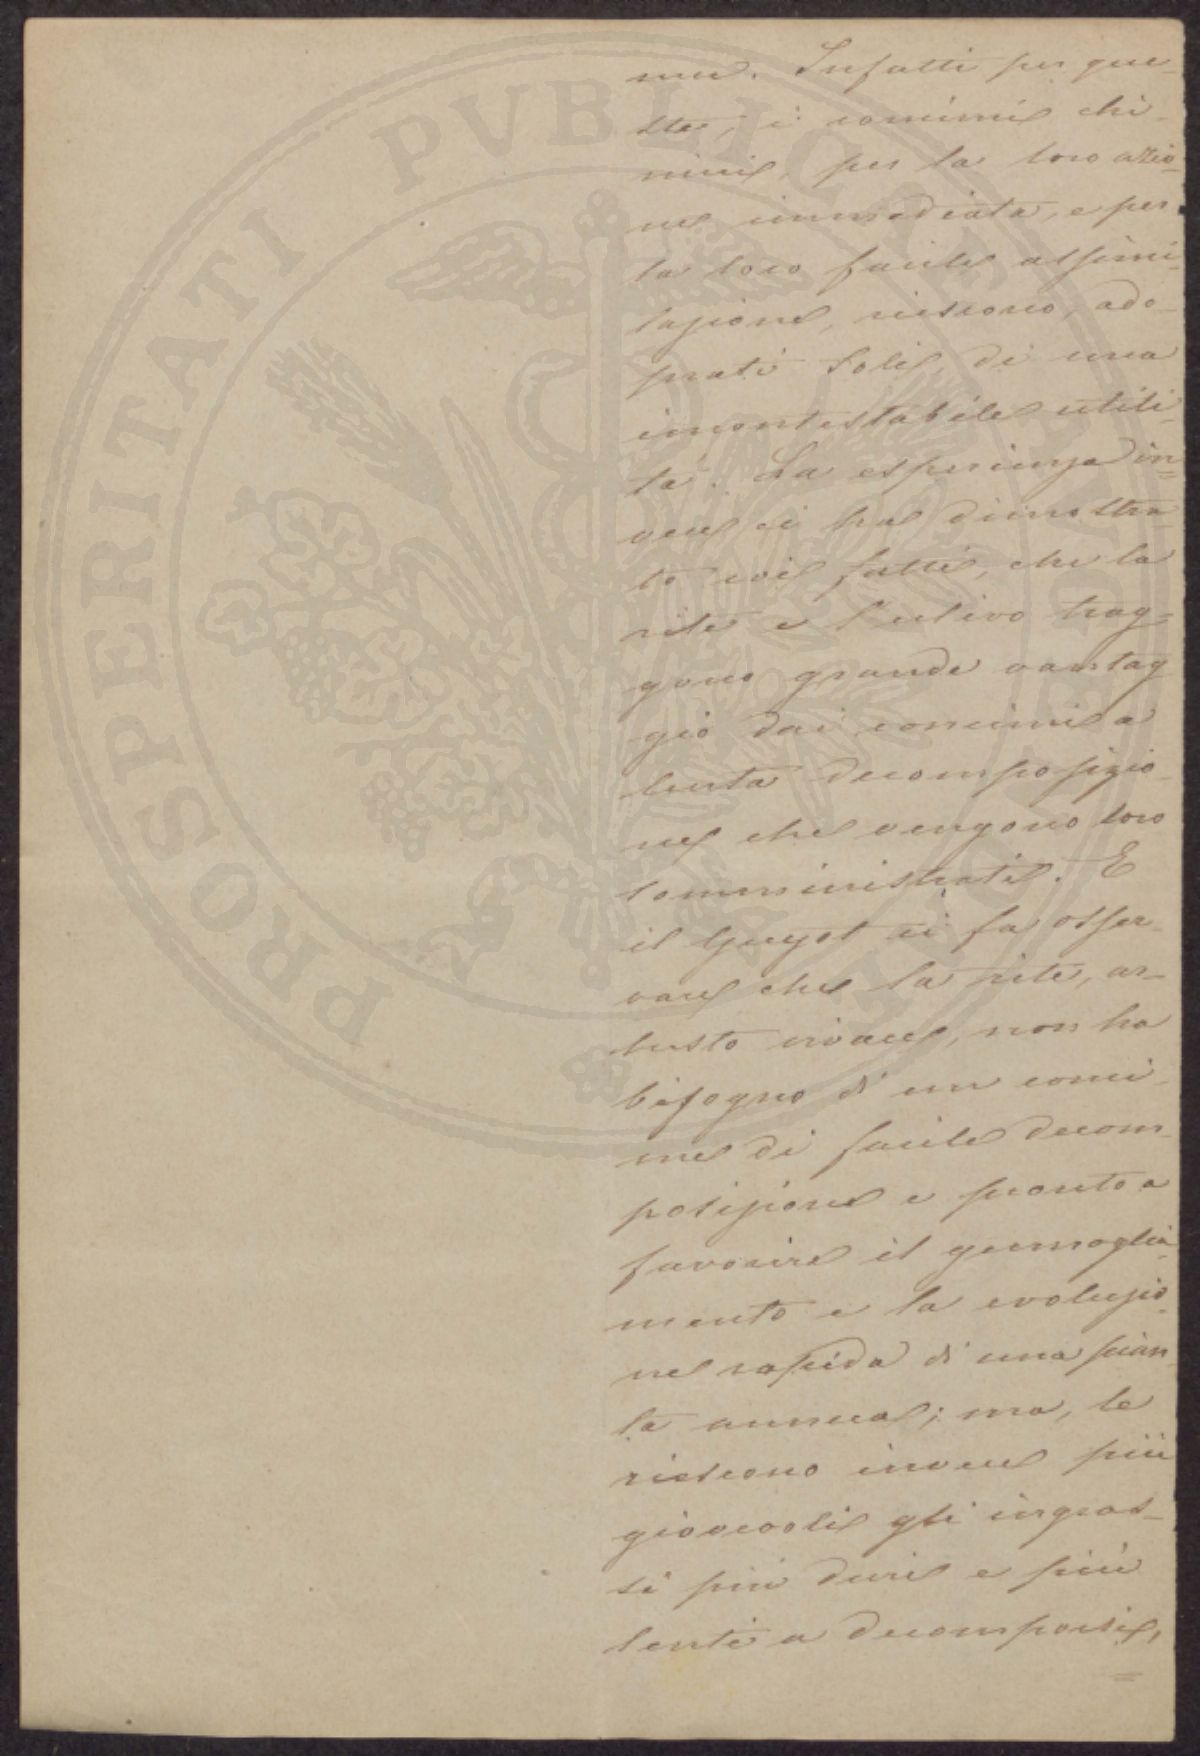 nue. Infatti per que-
ste, i concimi chi-
mici, per la loro azio-
ne immediata, e per
la loro facile assimi-
lazione, riescono, ado-
prati soli, di una
incontestabile utili-
tà. La esperienza in=
vece ci ha dimostra-
to coi fatti, che la
vite e l'ulivo trag=
gono grande vantag
gio dai concimi a
lenta decomposizio-
ne che vengono loro
somministrati. E
il Guyot ci fa osser-
vare che la vite, ar-
busto vivace, non ha
bisogno di un conci-
me di facile decom-
posizione e pronto a
favorire il germoglia-
mento e la evoluzio-
ne rapida di una pian-
ta annua; ma, le
riescono invece più
giovevoli gli ingras-
si più duri e più
lenti a decomporsi,
PROSPERITATI PVBLICAE